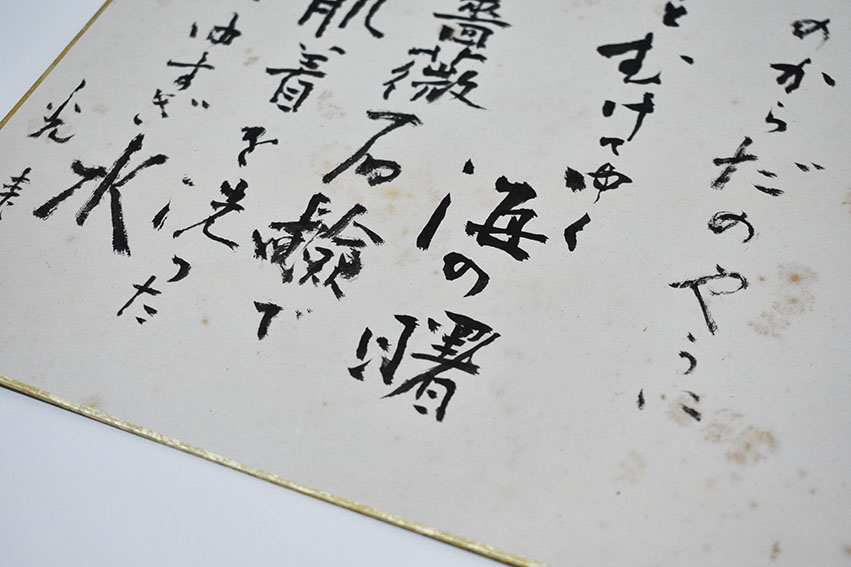 のからだのやうに
とむけてゆく
海の曙
薔薇石鹼で
肌着を洗つた
ゆすぎ水
光